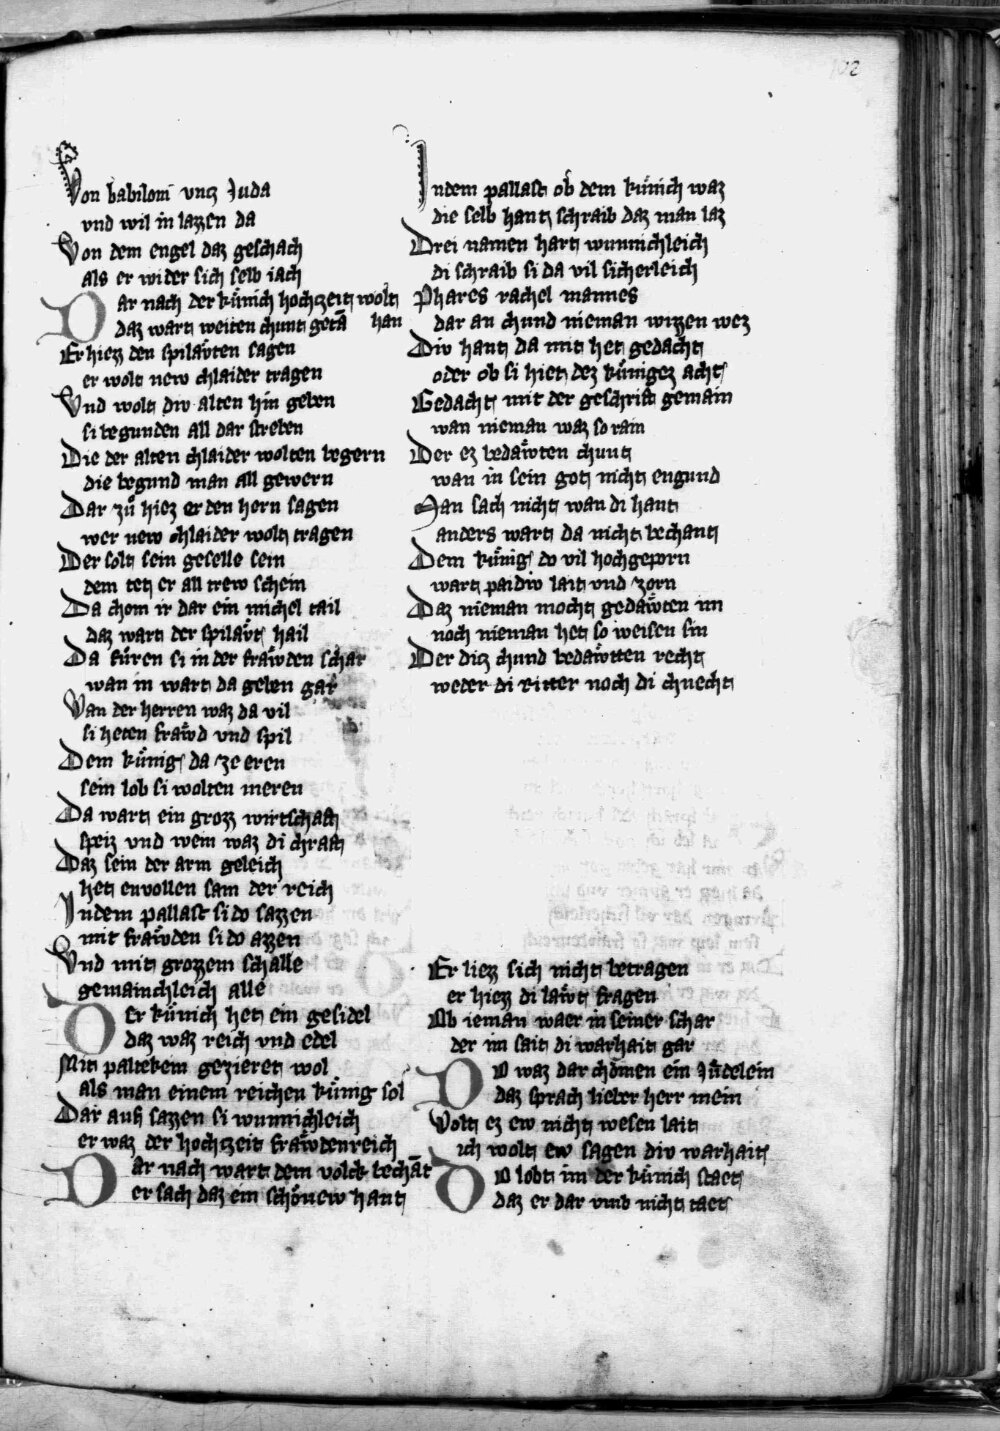 102
Von babiloni vntz Juda
vnd wil in lazzen da
Von dem engel daz geschach
als er wider sich selb iach
Dar nach der kuͤnich hochzeit wolt
daz wart weiten chunt getā han
Er hiez den spilaͤvten sagen
er wolt new chlaider tragen
Vnd wolt div alten hin geben
si begunden all dar streben
Die der alten chlaider wolten begern
die begund man all gewern
Dar zuͦ hiez er den hern sagen
wer new chlaider wolt tragen
Der solt sein geselle sein
dem tet er all trew schein
Da chom ir dar ein michel tail
daz wart der spilaͤvt hail
Da fuͤren si in der fraͤwden schar
wan in wart da geben gar
Wan der herren waz da vil
si heten fraͤwd vnd spil
Dem kuͤnig da ze eren
sein lob si wolten meren
Da wart ein grozz wirtschaft
speiz vnd wein waz di chraft
Daz sein der arm geleich
het envollen sam der reich
Indem pallast si do sazzen
mit fraͤwden si do azzen
Vnd mit grozzem schalle
gemainchleich alle
Der kuͤnich het ein gesidel
daz waz reich vnd edel
Mit paltekein gezieret wol
als man einem reichen kuͤnig sol
Dar auf sazzen si wunnichleich
er waz der hochzeit fraͤwdenreich
Dar nach wart dem volck bechāt
er sach daz ein schoͤnew hant
Indem pallast ob dem kuͤnich waz
die selb hant schraib daz man laz
Drei namen hart wunnichleich
di schraib si da vil sicherleich
Phares rachel mannes
dar an chund nieman wizzen wez
Div hant da mit het gedacht
oder ob si hiet dez kuͤnigez acht
Gedacht mit der geschrift gemain
wan nieman waz so rain
Der ez bedaͤwten chunt
wan in sein got nicht engund
Man sach nicht wan di hant
anders wart da nicht bechant
Dem kuͤnig do vil hochgeporn
wart paidiv lait vnd zorn
Daz nieman mocht gedaͤwten im
noch nieman het so weisen sin
Der ditz chund bedaͤwtten recht
weder di ritter noch di chnecht
Er liez sich nicht betragen
er hiez di laͤwt fragen
Ob ieman waer in seiner schar
der im sait di warhait gar
Do waz dar choͤmen ein Juͤdelein
daz sprach lieber herr mein
Wolt ez ew nicht wesen lait
ich wolt ew sagen div warhait
Do lobt im der kuͤnich staet
daz er dar vmb nicht taet